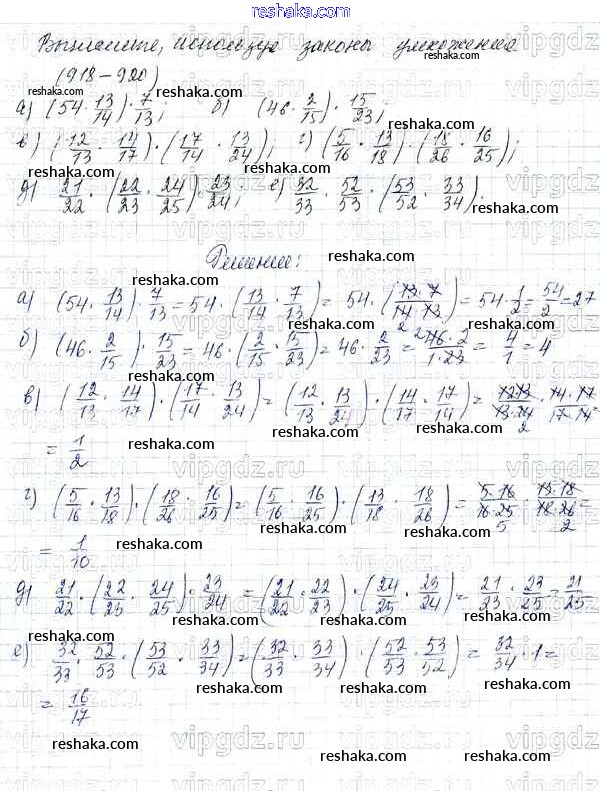 reshaka.com
Вычислите, используя законы умножения
(918-920)
а) (54 · 13/14) · 7/13; б) (46 · 2/15) · 15/23;
в) (12/13 · 14/17) · (17/14 · 13/24); г) (5/16 · 13/18) · (18/26 · 16/25);
д) 21/22 · (22/23 · 24/25) · 23/24; е) 32/33 · 52/53 · (53/52 · 33/34).
Решение:
а) (54 · 13/14) · 7/13 = 54 · (13/14 · 7/13) = 54 · (13·7/14·13) = 54 · 1/2 = 54/2 = 27
б) (46 · 2/15) · 15/23 = 46 · (2/15 · 15/23) = 46 · 2/23 = 46·2/1·23 = 4/1 = 4
в) (12/13 · 14/17) · (17/14 · 13/24) = (12/13 · 13/24) · (14/17 · 17/14) = 12·13/13·24 · 14·17/17·14 =
= 1/2
г) (5/16 · 13/18) · (18/26 · 16/25) = (5/16 · 16/25) · (13/18 · 18/26) = 5·16/16·25 · 13·18/18·26 =
= 1/10
д) 21/22 · (22/23 · 24/25) · 23/24 = (21/22 · 22/23) · (24/25 · 23/24) = 21/23 · 23/25 = 21/25
е) 32/33 · 52/53 · (53/52 · 33/34) = (32/33 · 33/34) · (52/53 · 53/52) = 32/34 · 1 =
= 16/17